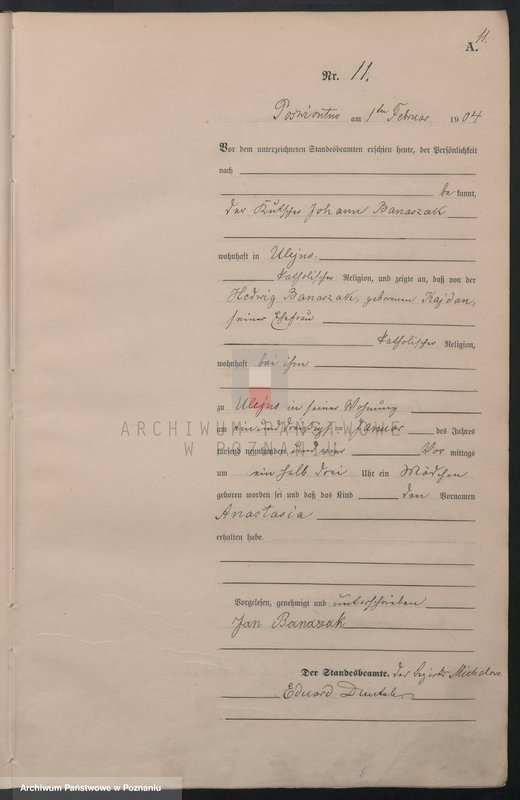 11.
A.
Nr. 11.
am 1ten Februar 1904
Vor dem unterzeichneten Standesbeamten erschien heute, der Persönlichkeit
nach
be kannt,
der Kutscher Johann Banaszak
wohnhaft in Ulejno.
katholischer Religion, und zeigte an, daß von der
Hedwig Banaszak, geborenen Kajdan,
seiner Ehefrau
katholischer Religion,
wohnhaft bei ihm
zu Ulejno in seine Wohnung
am ein und dreißigsten Januar des Jahres
tausend neunhundert und vier Vor mittags
um ein halb drei Uhr ein Mädchen
geboren worden sei und daß das Kind den Vornamen
Anastasia
erhalten habe.
Vorgelesen, genehmigt und unterschrieben
Jan Banaszak
Der Standesbeamte.
Eduard
ARCHIWUM PAŃSTWOWE
W POZNANIU
Archiwum Państwowe w Poznaniu